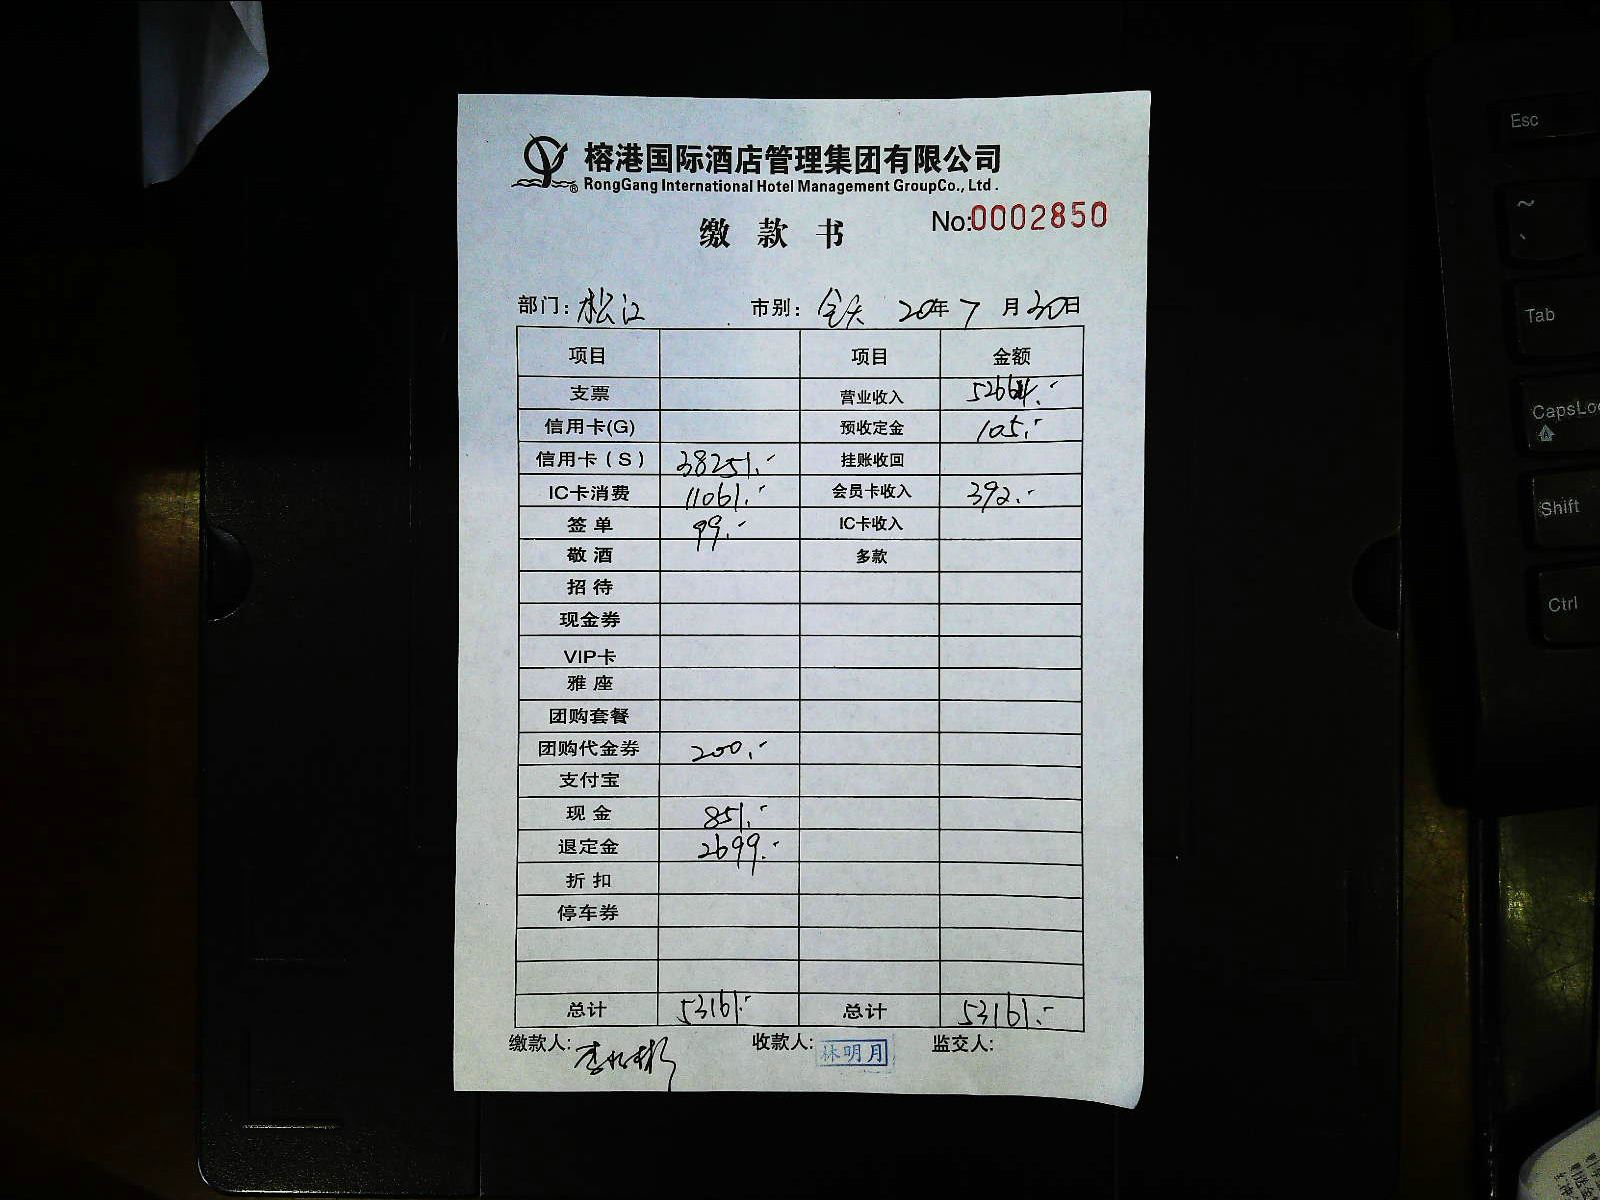 榕港国际酒店管理集团有限公司
RongGang International Hotel Management GroupCo., Ltd.
缴款书
No:0002850
部门: 松江 市别: 全天 20年7月30日
项目 项目 金额
支票 营业收入 52664.-
信用卡(G) 预收定金 105.-
信用卡(S) 38251.- 挂账收回
IC卡消费 11061.- 会员卡收入 392.-
签单 99.- IC卡收入
敬酒 多款
招待
现金券
VIP卡
雅座
团购套餐
团购代金券 200.-
支付宝
现金 851.-
退定金 2699.-
折扣
停车券
总计 53161.- 总计 53161.-
缴款人: 收款人: 林明月 监交人:
Esc
~
、
Tab
CapsLoc
Shift
Ctrl